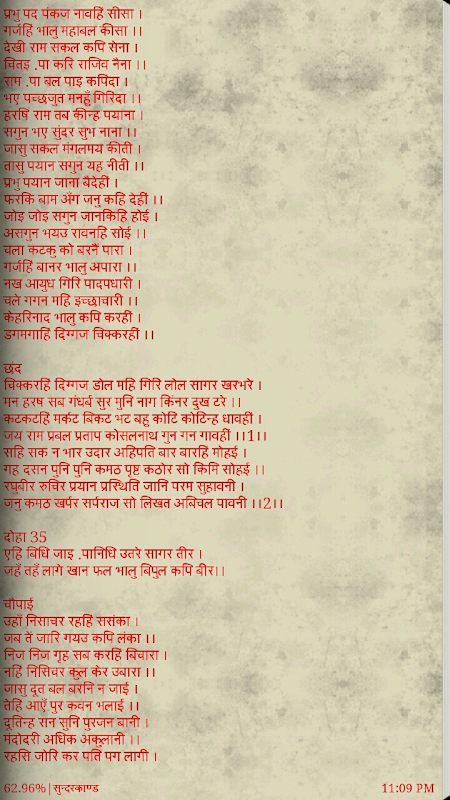 प्रभु पद पंकज नावहिं सीसा ।
गर्जहिं भालु महाबल कीसा ।।
देखी राम सकल कपि सेना ।
चितइ .पा करि राजिव नैना ।।
राम .पा बल पाइ कपिंदा ।
भए पच्छजुत मनहुँ गिरिंदा ।।
हरषि राम तब कीन्ह पयाना ।
सगुन भए सुंदर सुभ नाना ।।
जासु सकल मंगलमय कीती ।
तासु पयान सगुन यह नीती ।।
प्रभु पयान जाना बैदेहीं ।
फरकि बाम अँग जनु कहि देहीं ।।
जोइ जोइ सगुन जानकिहि होई ।
असगुन भयउ रावनहि सोई ।।
चला कटकु को बरनैं पारा ।
गर्जहिं बानर भालु अपारा ।।
नख आयुध गिरि पादपधारी ।
चले गगन महि इच्छाचारी ।।
केहरिनाद भालु कपि करहीं ।
डगमगाहिं दिग्गज चिक्करहीं ।।
छंद
चिक्करहिं दिग्गज डोल महि गिरि लोल सागर खरभरे ।
मन हरष सब गंधर्ब सुर मुनि नाग किंनर दुख टरे ।।
कटकटहिं मर्कट बिकट भट बहु कोटि कोटिन्ह धावहीं ।
जय राम प्रबल प्रताप कोसलनाथ गुन गन गावहीं ।।1।।
सहि सक न भार उदार अहिपति बार बारहिं मोहई ।
गह दसन पुनि पुनि कमठ पृष्ट कठोर सो किमि सोहई ।।
रघुबीर रुचिर प्रयान प्रस्थिति जानि परम सुहावनी ।
जनु कमठ खर्पर सर्पराज सो लिखत अबिचल पावनी ।।2।।
दोहा 35
एहि बिधि जाइ .पानिधि उतरे सागर तीर ।
जहँ तहँ लागे खान फल भालु बिपुल कपि बीर।।
चौपाई
उहाँ निसाचर रहहिं ससंका ।
जब तें जारि गयउ कपि लंका ।।
निज निज गृह सब करहिं बिचारा ।
नहिं निसिचर कुल केर उबारा ।।
जासु दूत बल बरनि न जाई ।
तेहि आएँ पुर कवन भलाई ।।
दूतिन्ह सन सुनि पुरजन बानी ।
मंदोदरी अधिक अकुलानी ।।
रहसि जोरि कर पति पग लागी ।
62.96% | सुन्दरकाण्ड
11:09 PM